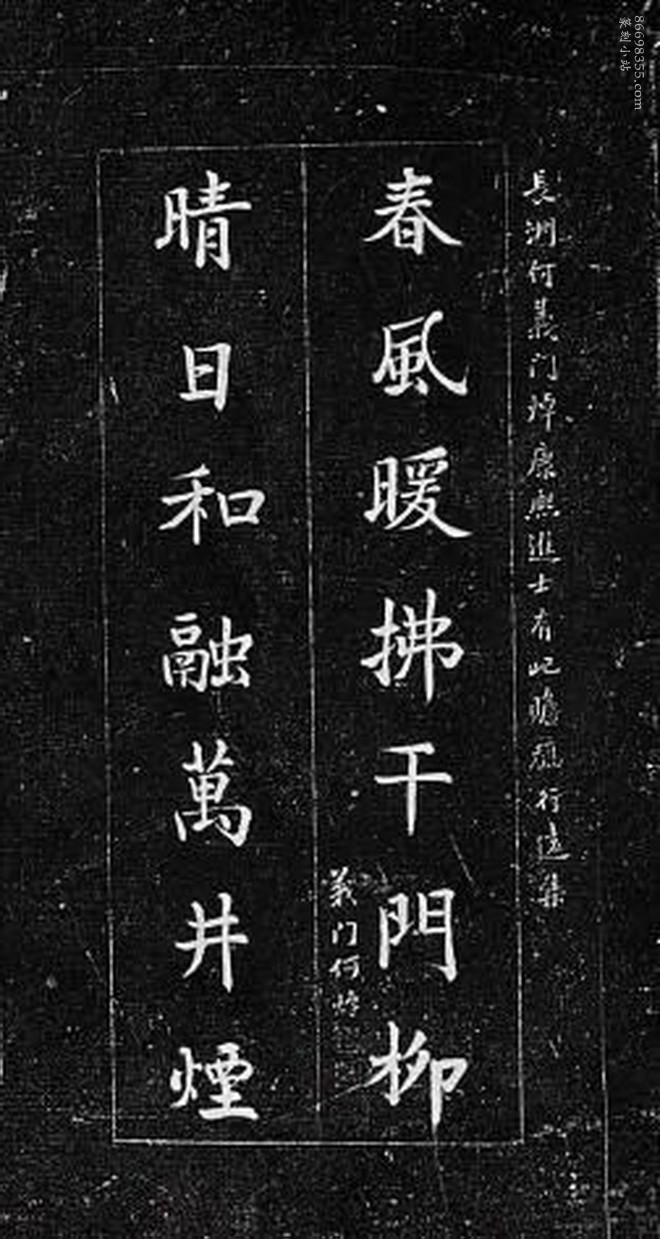 長洲何義门焯康熙進士有
行遠集
春風暖拂千門柳
義门何焯
晴日和融萬井煙
86698355.com
篆刻小站